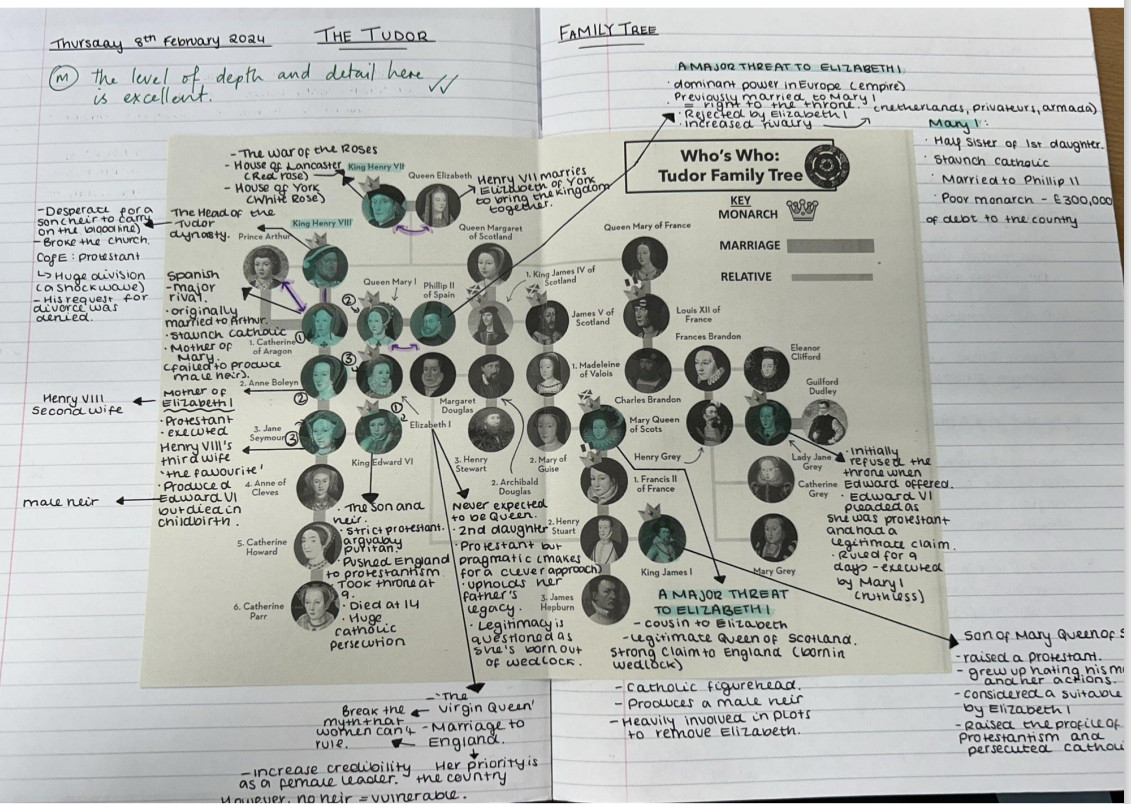 Thursday 8th February 2024
THE TUDOR
FAMILY TREE
(M) the level of depth and detail here
is excellent.
A MAJOR THREAT TO ELIZABETH I
· dominant power in Europe (empire)
Previously married to Mary I
= right to the throne.
· Rejected by Elizabeth I
· increased rivalry
(netherlands, privateurs, armada)
Mary I:
· Half Sister of 1st daughter.
· Staunch catholic
· Married to Phillip II
· Poor monarch - £300,000
of debt to the country
- The War of the Roses
- House of Lancaster
(Red rose)
- House of York
(White Rose)
Henry VII marries
Elizabeth of York
to bring the kingdom
together.
Who's Who:
Tudor Family Tree
KEY
MONARCH
MARRIAGE
RELATIVE
King Henry VII
Queen Elizabeth
The Head of the
Tudor
dynasty.
King Henry VIII
Prince Arthur
Queen Margaret
of Scotland
Queen Mary of France
- Desperate for a
son (heir to carry
on the bloodline)
- Broke the church.
CofE: protestant
↳ Huge division
(a shockwave)
- His request for
divorce was
denied.
Spanish
- major
rival.
· originally
married to Arthur.
· Staunch catholic
· Mother of
Mary.
(failed to produce
male heir).
Queen Mary I
Phillip II
of Spain
1. King James IV of
Scotland
James V of
Scotland
Louis XII of
France
Frances Brandon
Eleanor
Clifford
1. Catherine
of Aragon
①
②
③
2. Anne Boleyn
②
Mother of
Elizabeth I
· Protestant
· executed
Henry VIII
second wife
Margaret
Douglas
1. Madeleine
of Valois
Charles Brandon
Guilford
Dudley
3. Jane
Seymour
③
①
Elizabeth I
King Edward VI
3. Henry
Stewart
2. Mary of
Guise
Mary Queen
of Scots
Henry Grey
Lady Jane
Grey
Henry VIII's
third wife
· 'the favourite'
· Produced
Edward VI
but died in
childbirth.
male heir
4. Anne of
Cleves
2. Archibald
Douglas
1. Francis II
of France
Catherine
Grey
5. Catherine
Howard
2. Henry
Stuart
King James I
Mary Grey
6. Catherine
Parr
3. James
Hepburn
· The son and
heir.
· Strict protestant.
arguably
puritan.
· Pushed England
to protestantism
· Took throne at
9.
· Died at 14
· Huge
catholic
persecution
Never expected
to be Queen.
· 2nd daughter
· Protestant but
pragmatic (makes
for a clever approach)
· upholds her
father's
legacy.
· Legitimacy is
questioned as
she's born out
of wedlock.
· Initially
refused the
throne when
Edward offered.
· Edward VI
pleaded as
she was protestant
and had a
legitimate claim.
· Ruled for 9
days - executed
by Mary I
(ruthless)
A MAJOR THREAT
TO ELIZABETH I
- cousin to Elizabeth
- Legitimate Queen of Scotland.
Strong claim to England (born in
wedlock)
- Catholic figurehead.
- Produces a male heir
- Heavily involved in plots
to remove Elizabeth.
Son of Mary Queen of S
- raised a protestant.
- grew up hating his m
and her actions.
- considered a suitable
by Elizabeth I
- Raised the profile of
Protestantism and
persecuted catholi
- 'The
Virgin Queen'
Break the
myth that
women can't
rule.
- Marriage to
England.
Her priority is
the country
- increase credibility
as a female leader.
However, no heir = vulnerable.